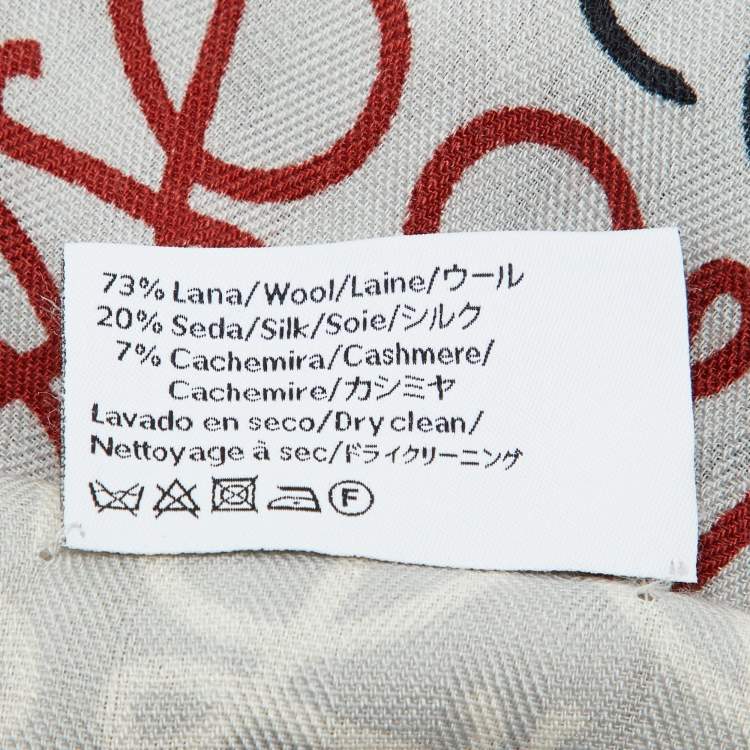 73% Lana/Wool/Laine/ウール
20% Seda/Silk/Soie/シルク
7% Cachemira/Cashmere/
Cachemire/カシミヤ
Lavado en seco/Dry clean/
Nettoyage à sec/ドライクリーニング
F